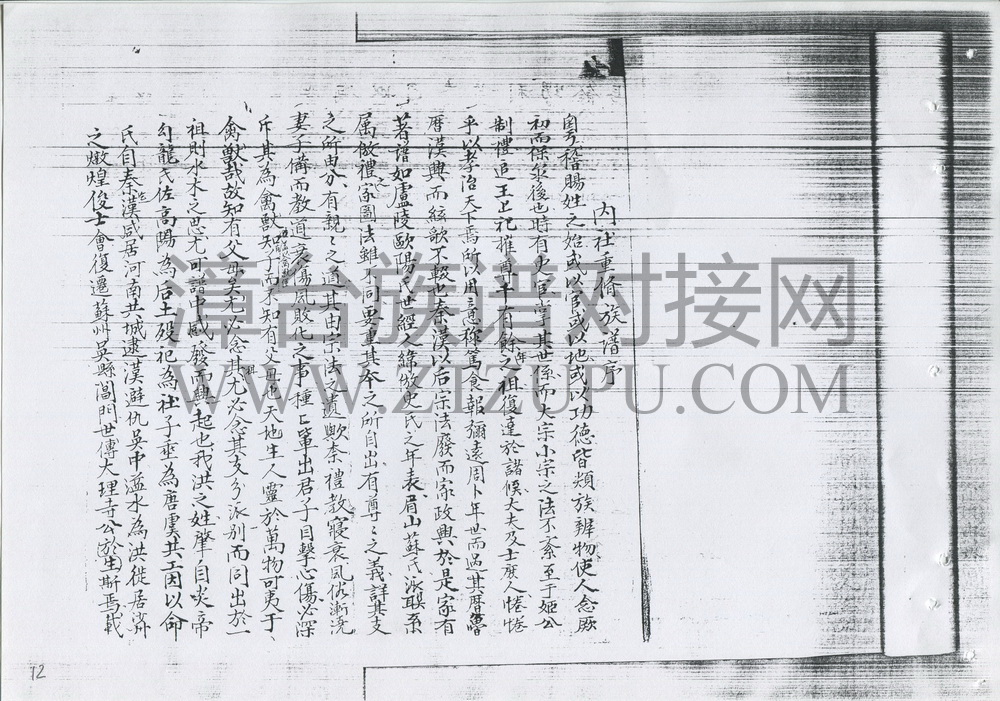 內社重脩族譜序
粵稽賜姓之始或以官或以地或以功德皆類族辨物使人念厥
初而保後也時有史官掌其世係而大宗小宗之法不紊至于姬公
制禮追王上祀推尊十有餘年之祖復達於諸候大夫及士庶人惓惓
乎以孝治天下焉所以用意称篤食報彌遠周卜年世而過其曆
曆漢興而絃歌不輟也秦漢以后宗法廢而家政興於是家有
著譜如盧陵歐陽氏世經人緯倣史氏之年表眉山蘇氏派聯系
属倣禮家之圖法雖不同要重其本之所自出有尊々之義詳其支
之所由分有親々之道其由宗法之遺歟奈禮教寢衰風俗漸澆
妻子備而教道衰傷風敗化之事種々輩出君子目擊心傷必深
斥其為禽獸知子而不知有父母也天地生人靈於萬物可夷于
禽獸哉故知有父母矣尤必念其祖尤必念其支分派别而同出於一
祖則水木之思尤可譜中感發而興起也我洪之姓肇自炎帝
勾龍氏佐高陽為后土殁祀為社子垂為唐虞共工因以命
氏自秦漢咸居河南共城逮漢避仇吳中溢水為洪徙居濟
之燉煌俊士會復遷蘇州吳縣閶門世傳大理寺公於生斯焉載
漳台族谱对接网
WWW.ZTZUPU.COM
12